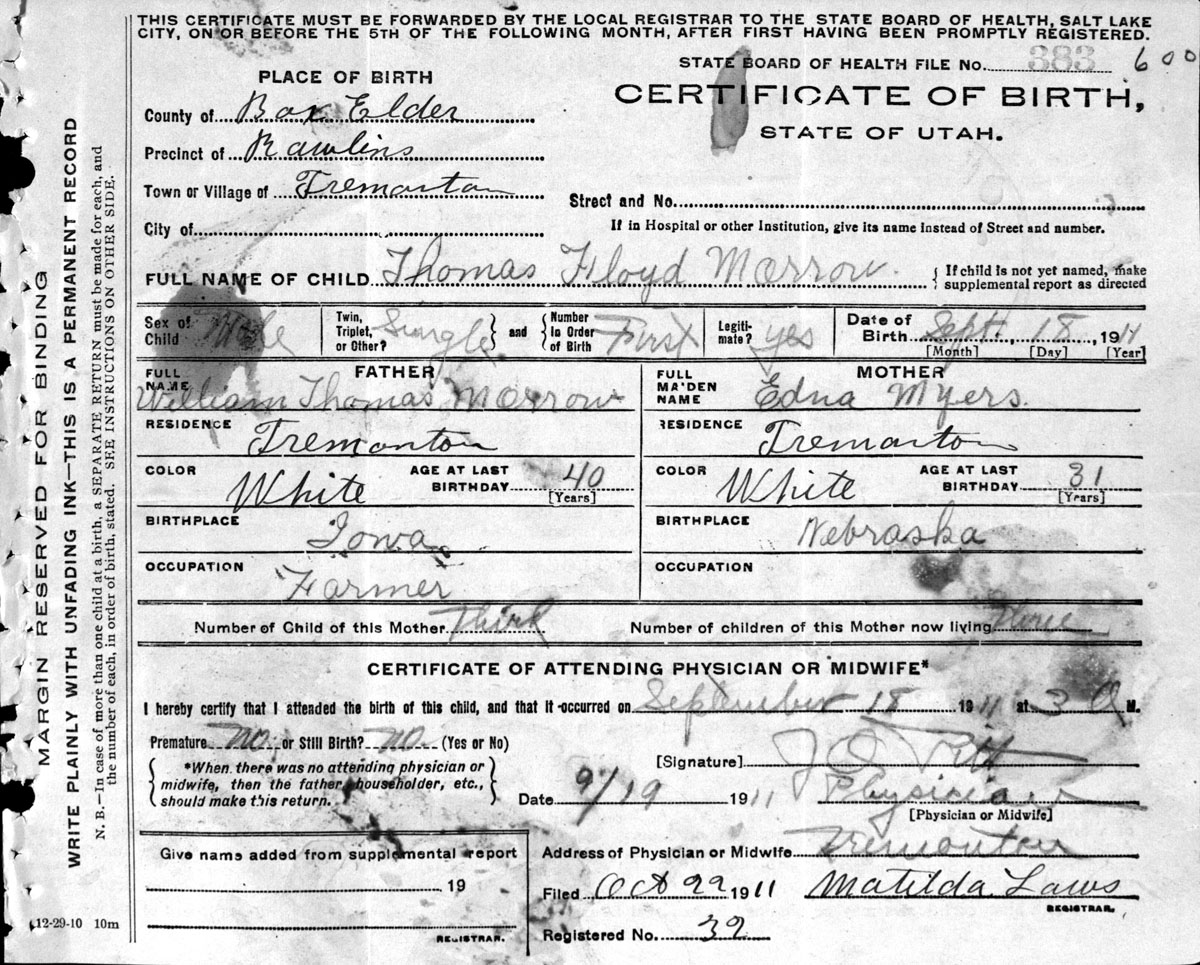 THIS CERTIFICATE MUST BE FORWARDED BY THE LOCAL REGISTRAR TO THE STATE BOARD OF HEALTH, SALT LAKE
CITY, ON OR BEFORE THE 5TH OF THE FOLLOWING MONTH, AFTER FIRST HAVING BEEN PROMPTLY REGISTERED.
MARGIN RESERVED FOR BINDING
WRITE PLAINLY WITH UNFADING INK—THIS IS A PERMANENT RECORD
N. B.—In case of more than one child at a birth, a SEPARATE RETURN must be made for each, and
the number of each, in order of birth, stated. SEE INSTRUCTIONS ON OTHER SIDE.
STATE BOARD OF HEALTH FILE No. 383 600
CERTIFICATE OF BIRTH,
STATE OF UTAH.
PLACE OF BIRTH
County of Box Elder
Precinct of Rawlins
Town or Village of Tremonton
City of
Street and No.
If in Hospital or other Institution, give its name instead of Street and number.
FULL NAME OF CHILD Thomas Floyd Morrow.
{ If child is not yet named, make
supplemental report as directed
Sex of Child Male
Twin, Triplet, or Other? Single } and { Number In Order of Birth First
Legiti- mate? yes
Date of Birth Sept. 18, 1911
[Month] [Day] [Year]
FATHER
FULL NAME
William Thomas Morrow
RESIDENCE
Tremonton
COLOR White AGE AT LAST BIRTHDAY 40 [Years]
BIRTHPLACE
Iowa
OCCUPATION
Farmer
MOTHER
FULL MAIDEN NAME
Edna Myers.
RESIDENCE
Tremonton
COLOR White AGE AT LAST BIRTHDAY 31 [Years]
BIRTHPLACE
Nebraska
OCCUPATION
Number of Child of this Mother Third Number of children of this Mother now living Three
CERTIFICATE OF ATTENDING PHYSICIAN OR MIDWIFE*
I hereby certify that I attended the birth of this child, and that it occurred on September 18 1911 at 3 A M.
Premature no or Still Birth? no (Yes or No)
{ *When there was no attending physician or
midwife, then the father, householder, etc.,
should make this return. }
[Signature]
Date 9/19 1911 Physician
[Physician or Midwife]
Address of Physician or Midwife Tremonton
Give name added from supplemental report
19
REGISTRAR.
Filed Oct 22 1911 Matilda Laws
REGISTRAR.
Registered No. 32
12-29-10 10m